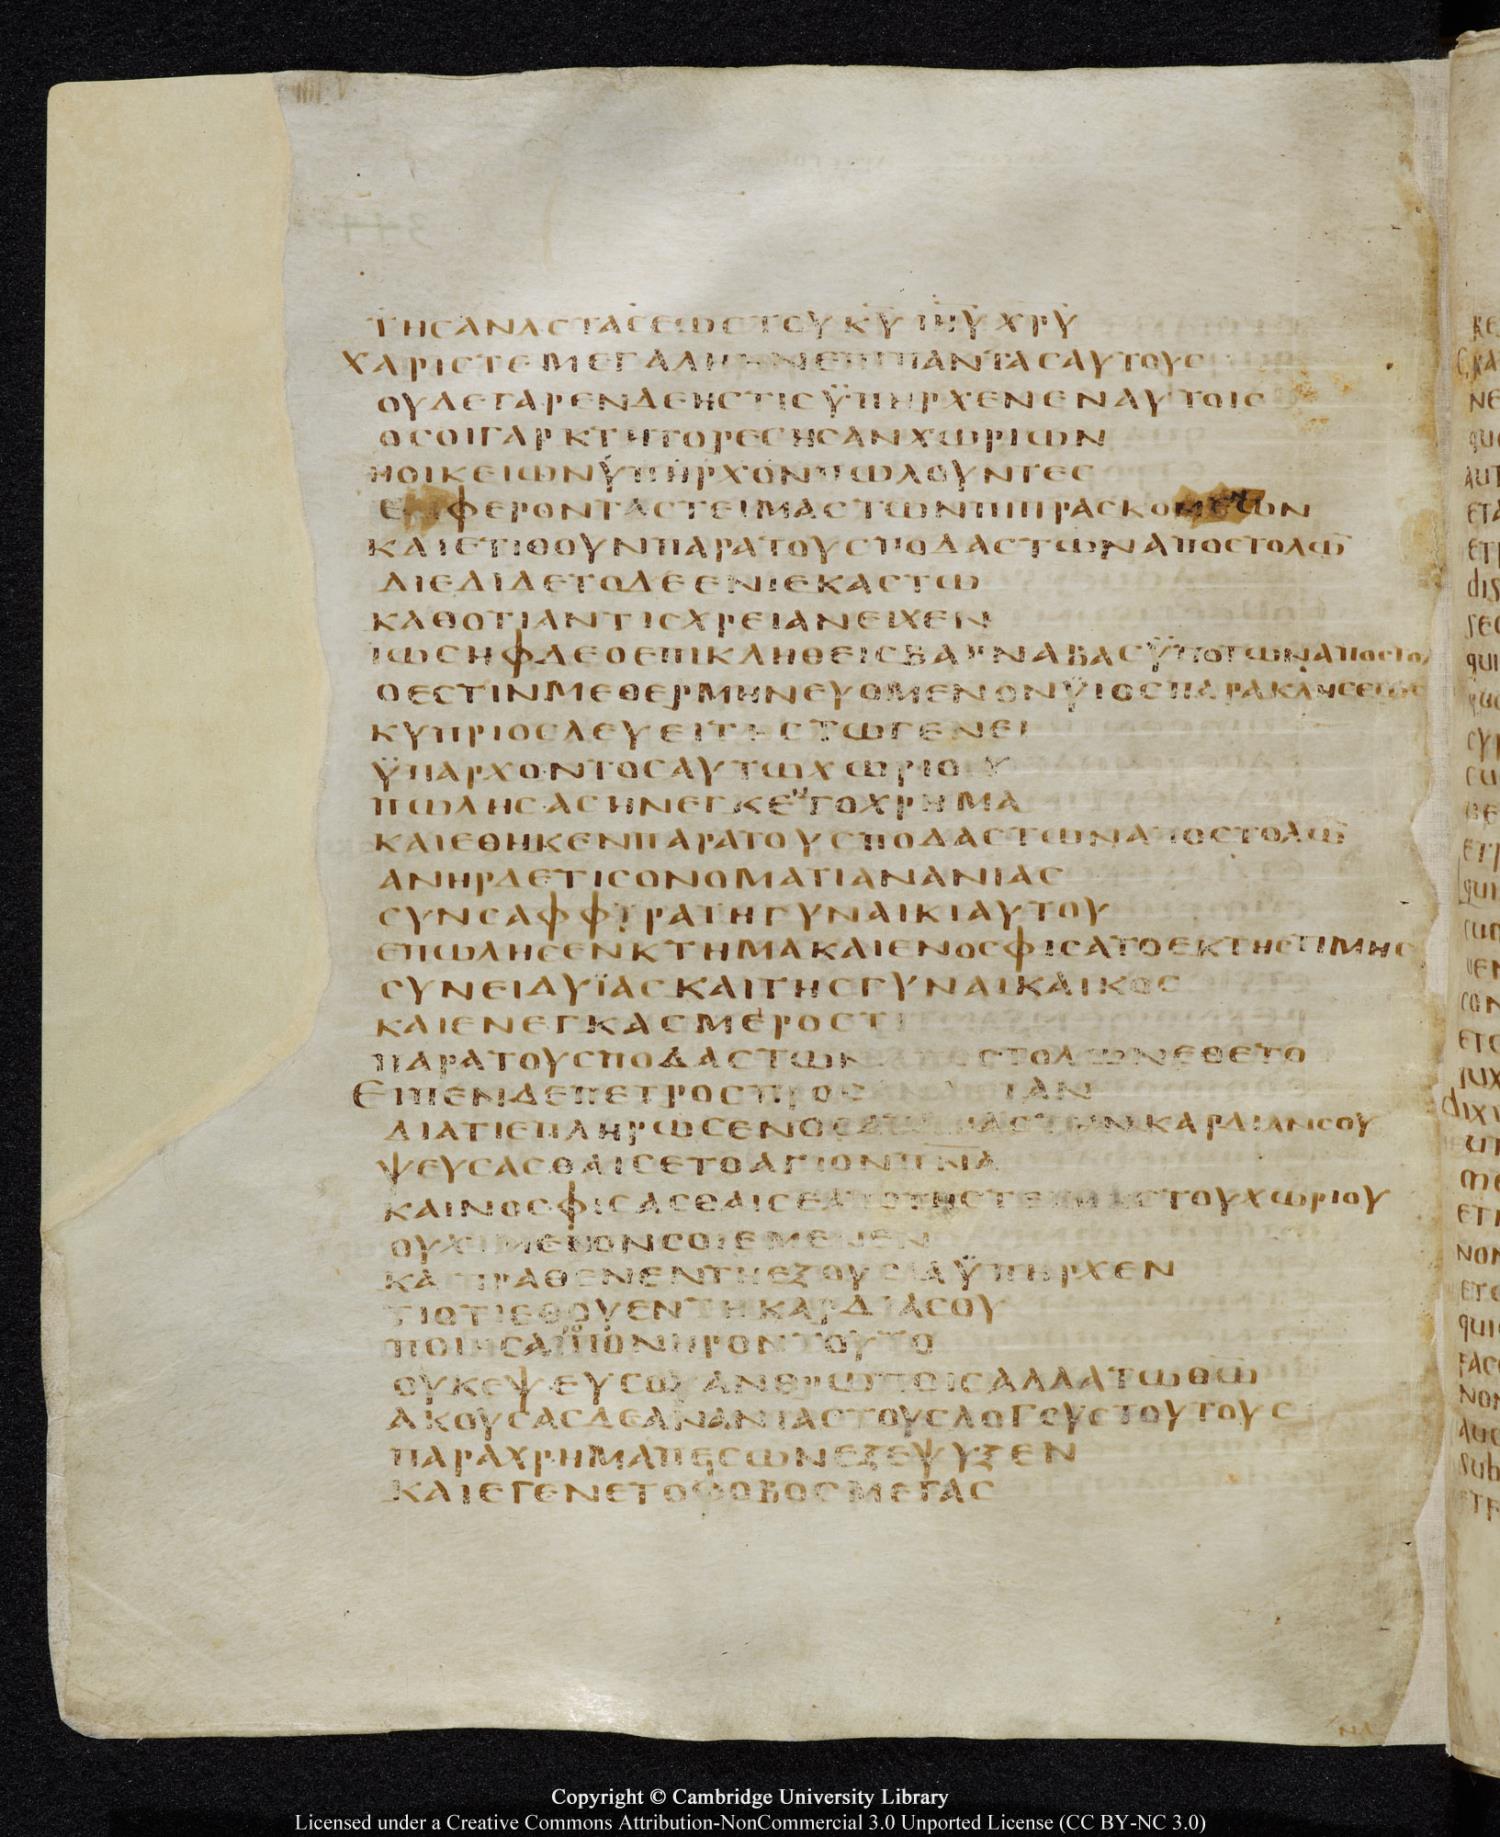 ΤΗΣ ΑΝΑΣΤΑΣΕΩΣ ΤΟΥ ΚΥ ΙΗΥ ΧΡΥ
ΧΑΡΙΣ ΤΕ ΜΕΓΑΛΗ ΗΝ ΕΠΙ ΠΑΝΤΑΣ ΑΥΤΟΥΣ
ΟΥΔΕ ΓΑΡ ΕΝΔΕΗΣ ΤΙΣ ΫΠΗΡΧΕΝ ΕΝ ΑΥΤΟΙΣ
ΟΣΟΙ ΓΑΡ ΚΤΗΤΟΡΕΣ ΗΣΑΝ ΧΩΡΙΩΝ
Η ΟΙΚΕΙΩΝ ΫΠΗΡΧΟΝ ΠΩΛΟΥΝΤΕΣ
ΦΕΡΟΝΤΑΣ ΤΕΙΜΑΣ ΤΩΝ ΠΙΠΡΑΣΚΟΜΕΝΩΝ
ΚΑΙ ΕΤΙΘΟΥΝ ΠΑΡΑ ΤΟΥΣ ΠΟΔΑΣ ΤΩΝ ΑΠΟΣΤΟΛΩ̅
ΔΙΕΔΙΔΕΤΟ ΔΕ ΕΝΙ ΕΚΑΣΤΩ
ΚΑΘΟΤΙ ΑΝ ΤΙΣ ΧΡΕΙΑΝ ΕΙΧΕΝ
ΙΩΣΗΦ ΔΕ Ο ΕΠΙΚΛΗΘΕΙΣ ΒΑΡΝΑΒΑΣ ΫΠΟ ΤΩΝ ΑΠΟΣΤΟΛ
Ο ΕΣΤΙΝ ΜΕΘΕΡΜΗΝΕΥΟΜΕΝΟΝ ΫΙΟΣ ΠΑΡΑΚΛΗΣΕΩΣ
ΚΥΠΡΙΟΣ ΛΕΥΕΙΤΗΣ ΤΩ ΓΕΝΕΙ
ΫΠΑΡΧΟΝΤΟΣ ΑΥΤΩ ΧΩΡΙΟΥ
ΠΩΛΗΣΑΣ ΗΝΕΓΚΕΝ ΤΟ ΧΡΗΜΑ
ΚΑΙ ΕΘΗΚΕΝ ΠΑΡΑ ΤΟΥΣ ΠΟΔΑΣ ΤΩΝ ΑΠΟΣΤΟΛΩ̅
ΑΝΗΡ ΔΕ ΤΙΣ ΟΝΟΜΑΤΙ ΑΝΑΝΙΑΣ
ΣΥΝ ΣΑΦΦΙΡΑ ΤΗ ΓΥΝΑΙΚΙ ΑΥΤΟΥ
ΕΠΩΛΗΣΕΝ ΚΤΗΜΑ ΚΑΙ ΕΝΟΣΦΙΣΑΤΟ ΕΚ ΤΗΣ ΤΙΜΗΣ
ΣΥΝΕΙΔΥΪΑΣ ΚΑΙ ΤΗΣ ΓΥΝΑΙΚΑΙΚΟΣ
ΚΑΙ ΕΝΕΓΚΑΣ ΜΕΡΟΣ ΤΙ
ΠΑΡΑ ΤΟΥΣ ΠΟΔΑΣ ΤΩΝ ΣΤΟΛΩΝ ΕΘΕΤΟ
ΕΙΠΕΝ ΔΕ ΠΕΤΡΟΣ ΠΡΟΣ ΑΝΑΝΙΑΝ
ΔΙΑ ΤΙ ΕΠΛΗΡΩΣΕΝ Ο ΣΑΤΑΝΑΣ ΤΗΝ ΚΑΡΔΙΑΝ ΣΟΥ
ΨΕΥΣΑΣΘΑΙ ΣΕ ΤΟ ΑΓΙΟΝ ΠΝΑ
ΚΑΙ ΝΟΣΦΙΣΑΣΘΑΙ ΣΕ ΑΠΟ ΤΗΣ ΤΕΙΜΗΣ ΤΟΥ ΧΩΡΙΟΥ
ΟΥΧΙ ΜΕΝΟΝ ΣΟΙ ΕΜΕΝΕΝ
ΚΑΙ ΠΡΑΘΕΝ ΕΝ ΤΗ ΕΞΟΥΣΙΑ ΫΠΗΡΧΕΝ
ΤΙ ΟΤΙ ΕΘΟΥ ΕΝ ΤΗ ΚΑΡΔΙΑ ΣΟΥ
ΠΟΙΗΣΑΙ ΠΟΝΗΡΟΝ ΤΟΥΤΟ
ΟΥΚ ΕΨΕΥΣΩ ΑΝΘΡΩΠΟΙΣ ΑΛΛΑ ΤΩ ΘΩ
ΑΚΟΥΣΑΣ ΔΕ ΑΝΑΝΙΑΣ ΤΟΥΣ ΛΟΓΟΥΣ ΤΟΥΤΟΥΣ
ΠΑΡΑΧΡΗΜΑ ΠΕΣΩΝ ΕΞΕΨΥΞΕΝ
ΚΑΙ ΕΓΕΝΕΤΟ ΦΟΒΟΣ ΜΕΓΑΣ
Copyright © Cambridge University Library
Licensed under a Creative Commons Attribution-NonCommercial 3.0 Unported License (CC BY-NC 3.0)